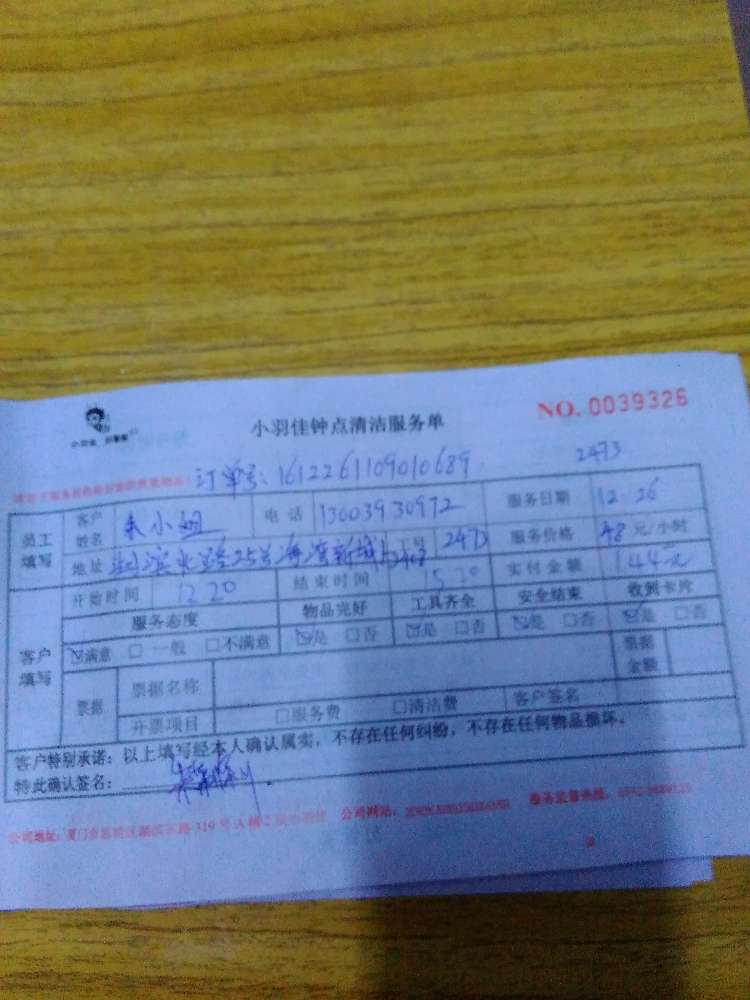 小羽佳钟点清洁服务单
NO. 0039326
订单号: 1612261109010689
2473
员工填写 客户姓名 朱小姐 电话 13603930972 服务日期 12.26
地址 湖滨北路25号海湾新城 工号 2473 服务价格 48 元/小时
开始时间 12 20 结束时间 15 20 实付金额 144元
客户填写 服务态度 物品完好 工具齐全 安全结束 收到卡片
☑满意 □ 一般 □不满意 ☑是 □否 ☑是 □否 ☑是 □否 ☑是 □否
票据 票据名称 票据金额
开票项目 □服务费 □清洁费 客户签名
客户特别承诺：以上填写经本人确认属实，不存在任何纠纷，不存在任何物品损坏。
特此确认签名：
公司地址: 厦门市思明区湖滨东路 319 号 A 公司网站: 服务监督热线: